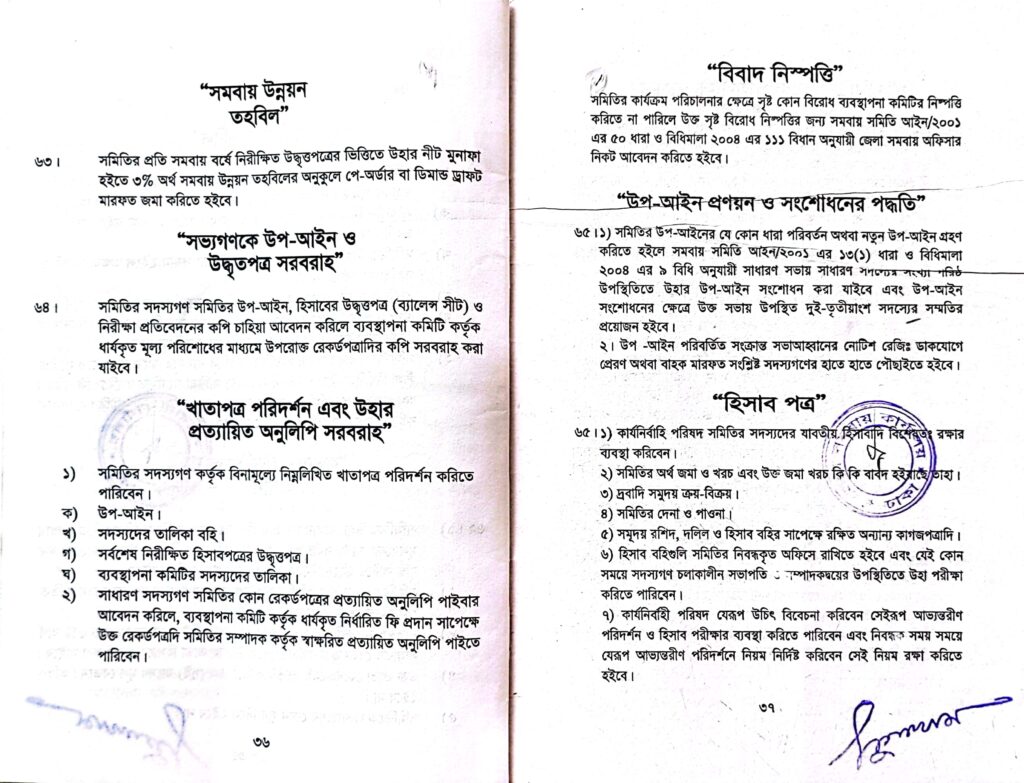 “সমবায় উন্নয়ন
তহবিল”
৬৩। সমিতির প্রতি সমবায় বর্ষে নিরীক্ষিত উদ্ধৃত্তপত্রের ভিত্তিতে উহার নীট মুনাফা
হইতে ৩% অর্থ সমবায় উন্নয়ন তহবিলের অনুকুলে পে-অর্ডার বা ডিমান্ড ড্রাফট
মারফত জমা করিতে হইবে।
“সভ্যগণকে উপ-আইন ও
উদ্ধৃতপত্র সরবরাহ”
৬৪। সমিতির সদস্যগণ সমিতির উপ-আইন, হিসাবের উদ্ধৃত্তপত্র (ব্যালেন্স সীট) ও
নিরীক্ষা প্রতিবেদনের কপি চাহিয়া আবেদন করিলে ব্যবস্থাপনা কমিটি কর্তৃক
ধার্যকৃত মূল্য পরিশোধের মাধ্যমে উপরোক্ত রেকর্ডপত্রাদির কপি সরবরাহ করা
যাইবে।
“খাতাপত্র পরিদর্শন এবং উহার
প্রত্যায়িত অনুলিপি সরবরাহ”
১) সমিতির সদস্যগণ কর্তৃক বিনামূল্যে নিম্নলিখিত খাতাপত্র পরিদর্শন করিতে
পারিবেন।
ক) উপ-আইন।
খ) সদস্যদের তালিকা বহি।
গ) সর্বশেষ নিরীক্ষিত হিসাবপত্রের উদ্ধৃত্তপত্র।
ঘ) ব্যবস্থাপনা কমিটির সদস্যদের তালিকা।
২) সাধারণ সদস্যগণ সমিতির কোন রেকর্ডপত্রের প্রত্যায়িত অনুলিপি পাইবার
আবেদন করিলে, ব্যবস্থাপনা কমিটি কর্তৃক ধার্যকৃত নির্ধারিত ফি প্রদান সাপেক্ষে
উক্ত রেকর্ডপত্রদি সমিতির সম্পাদক কর্তৃক স্বাক্ষরিত প্রত্যায়িত অনুলিপি পাইতে
পারিবেন।
৩৬
“বিবাদ নিস্পত্তি”
সমিতির কার্যক্রম পরিচালনার ক্ষেত্রে সৃষ্ট কোন বিরোধ ব্যবস্থাপনা কমিটির নিষ্পত্তি
করিতে না পারিলে উক্ত সৃষ্ট বিরোধ নিস্পত্তির জন্য সমবায় সমিতি আইন/২০০১
এর ৫০ ধারা ও বিধিমালা ২০০৪ এর ১১১ বিধান অনুযায়ী জেলা সমবায় অফিসার
নিকট আবেদন করিতে হইবে।
“উপ-আইন প্রণয়ন ও সংশোধনের পদ্ধতি”
৬৫।১) সমিতির উপ-আইনের যে কোন ধারা পরিবর্তন অথবা নতুন উপ-আইন গ্রহণ
করিতে হইলে সমবায় সমিতি আইন/২০০১ এর ১৩(১) ধারা ও বিধিমালা
২০০৪ এর ৯ বিধি অনুযায়ী সাধারণ সভায় সাধারণ সদস্যের সংখ্যা গরিষ্ঠ
উপস্থিতিতে উহার উপ-আইন সংশোধন করা যাইবে এবং উপ-আইন
সংশোধনের ক্ষেত্রে উক্ত সভায় উপস্থিত দুই-তৃতীয়াংশ সদস্যের সম্মতির
প্রয়োজন হইবে।
২। উপ -আইন পরিবর্তিত সংক্রান্ত সভাআহ্বানের নোটিশ রেজিঃ ডাকযোগে
প্রেরণ অথবা বাহক মারফত সংশ্লিষ্ট সদস্যগণের হাতে হাতে পৌছাইতে হইবে।
“হিসাব পত্র”
৬৫।১) কার্যনির্বাহি পরিষদ সমিতির সদস্যদের যাবতীয় হিসাবাদি বিশেষতঃ রক্ষার
ব্যবস্থা করিবেন।
২) সমিতির অর্থ জমা ও খরচ এবং উক্ত জমা খরচ কি কি বাবদ হইয়াছে তাহা।
৩) দ্রবাদি সমুদয় ক্রয়-বিক্রয়।
৪) সমিতির দেনা ও পাওনা।
৫) সমুদয় রশিদ, দলিল ও হিসাব বহির সাপেক্ষে রক্ষিত অন্যান্য কাগজপত্রাদি।
৬) হিসাব বহিগুলি সমিতির নিবন্ধকৃত অফিসে রাখিতে হইবে এবং যেই কোন
সময়ে সদস্যগণ চলাকালীন সভাপতি ও সম্পাদকদ্বয়ের উপস্থিতিতে উহা পরীক্ষা
করিতে পারিবেন।
৭) কার্যনির্বাহী পরিষদ যেরূপ উচিৎ বিবেচনা করিবেন সেইরূপ আভ্যন্তরীণ
পরিদর্শন ও হিসাব পরীক্ষার ব্যবস্থা করিতে পারিবেন এবং নিবন্ধক সময় সময়ে
যেরূপ আভ্যন্তরীণ পরিদর্শনে নিয়ম নির্দিষ্ট করিবেন সেই নিয়ম রক্ষা করিতে
হইবে।
৩৭